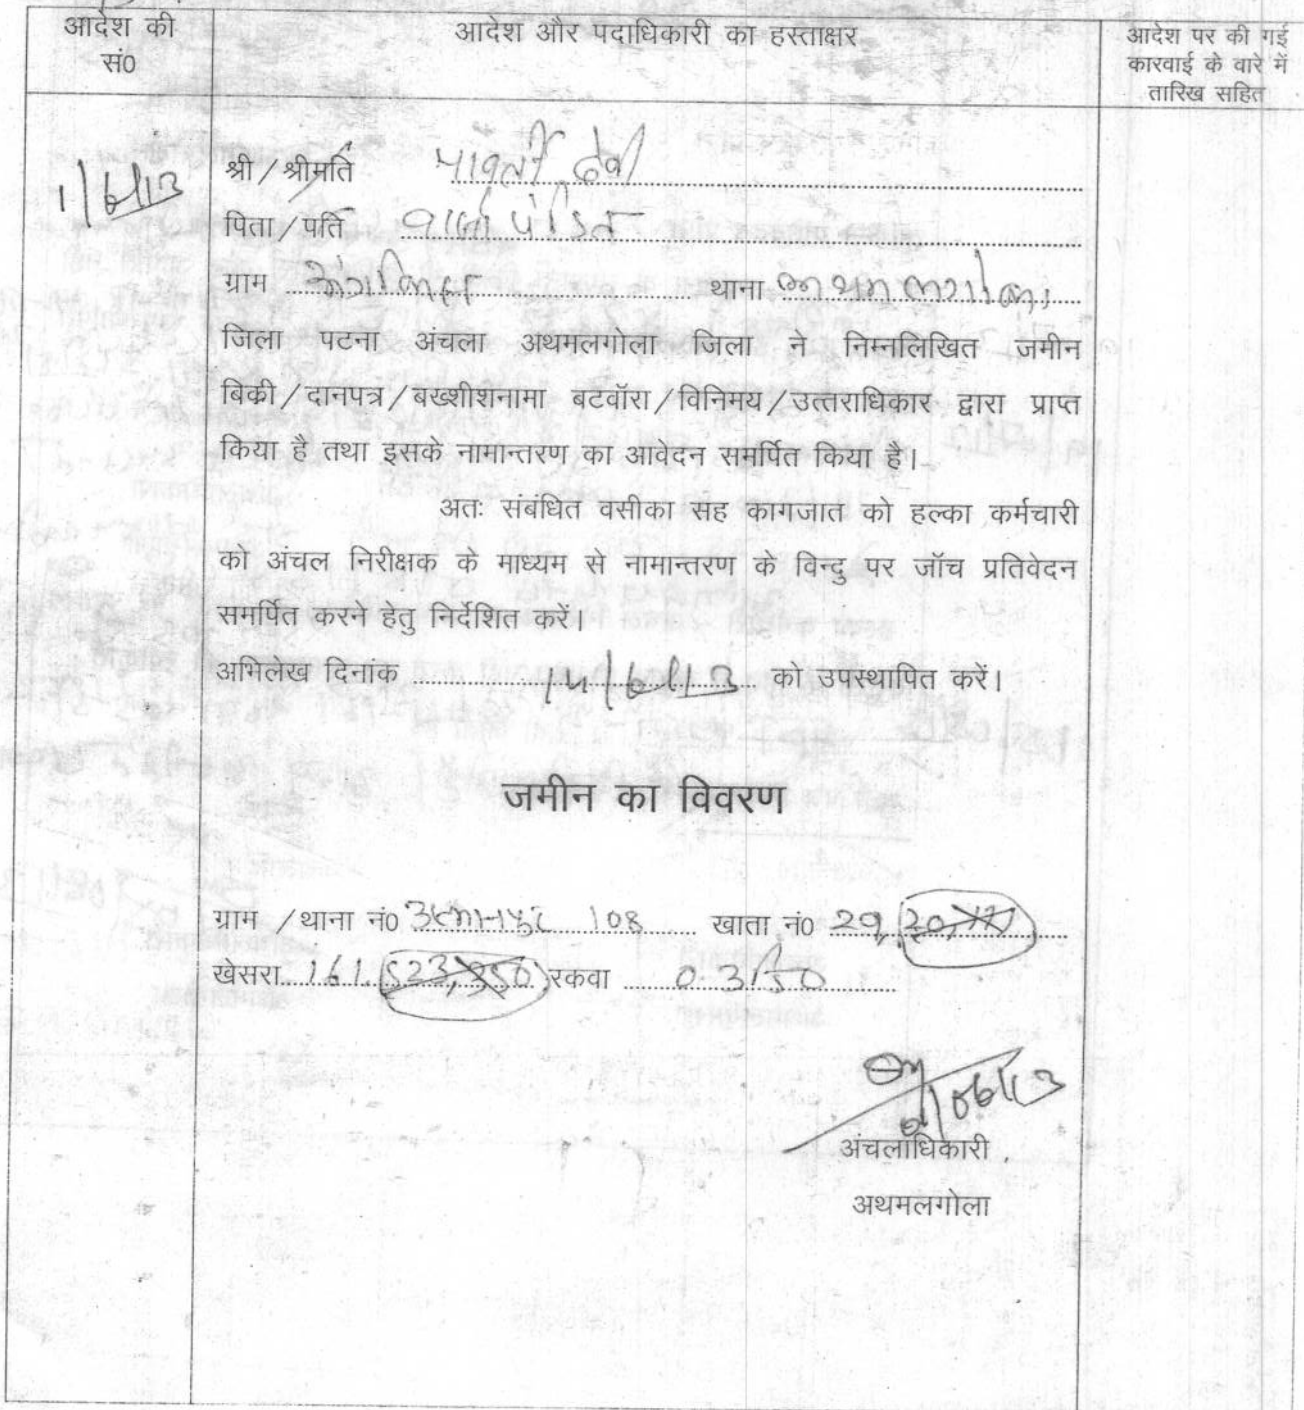 आदेश की
सं0
आदेश और पदाधिकारी का हस्ताक्षर
आदेश पर की गई
कारवाई के वारे में
तारिख सहित
1/6/13
श्री / श्रीमति पार्वती देवी
पिता / पति पंडित
ग्राम थाना अथमलगोला
जिला पटना अंचला अथमलगोला जिला ने निम्नलिखित जमीन
बिकी / दानपत्र / बख्शीशनामा बटवॉरा / विनिमय / उत्तराधिकार द्वारा प्राप्त
किया है तथा इसके नामान्तरण का आवेदन समर्पित किया है।
अतः संबंधित वसीका सह कागजात को हल्का कर्मचारी
को अंचल निरीक्षक के माध्यम से नामान्तरण के विन्दु पर जॉच प्रतिवेदन
समर्पित करने हेतु निर्देशित करें।
अभिलेख दिनांक 14/6/13 को उपस्थापित करें।
जमीन का विवरण
ग्राम / थाना नं0 108 खाता नं0 29,
खेसरा 161 523, 350 रकवा
अंचलाधिकारी
अथमलगोला